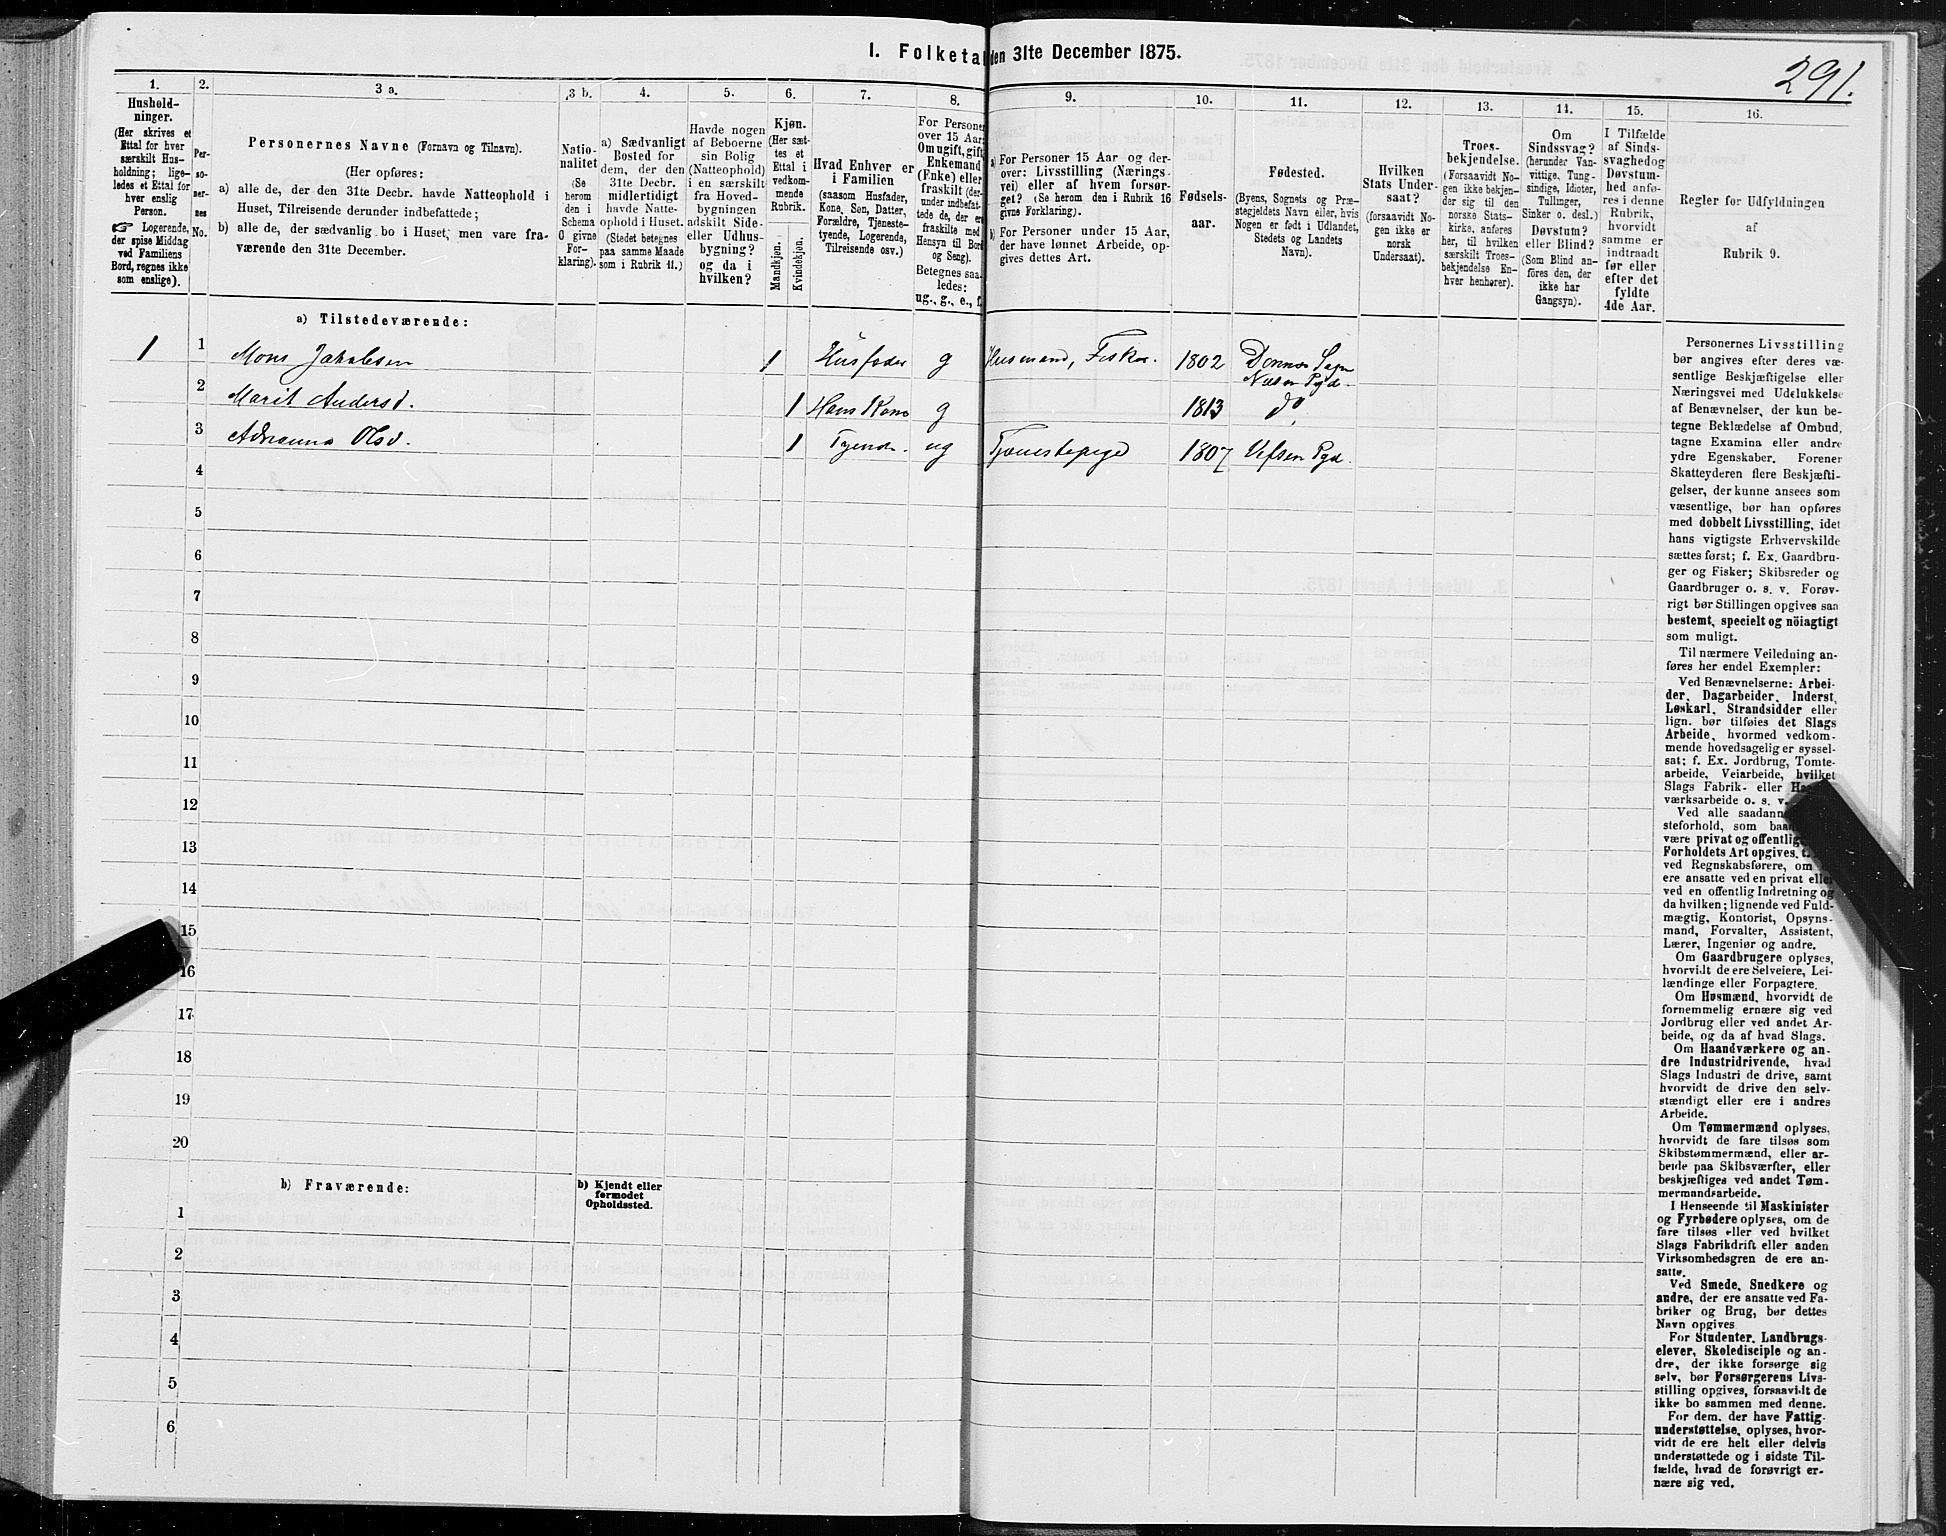 I. Folketal den 31te December 1875.
291.
1.
Hushold-
ninger.
(Her skrives et
Ettal for hver
særskilt Hus-
holdning; lige-
ledes et Ettal for
hver enslig
Person.
☞ Logerende,
der spise Middag
ved Familiens
Bord, regnes ikke
som enslige).
2.
Per-
so-
ner-
nes
No.
3 a.
Personernes Navne (Fornavn og Tilnavn).
(Her opføres:
a) alle de, der den 31te Decbr. havde Natteophold i
Huset, Tilreisende derunder indbefattede;
b) alle de, der sædvanlig bo i Huset, men vare fra-
værende den 31te December.
3 b.
Natio-
nalitet
(Se
herom
den i
Schema
O givne
For-
klaring).
4.
a) Sædvanligt
Bosted for
dem, der den
31te Decbr.
midlertidigt
havde Natte-
ophold i Huset.
(Stedet betegnes
paa samme Maade
som i Rubrik 11.)
5.
Havde nogen
af Beboerne
sin Bolig
(Natteophold)
i en særskilt
fra Hoved-
bygningen
adskilt Side-
eller Udhus-
bygning?
og da i
hvilken?
6.
Kjøn.
(Her sæt-
tes et
Ettal i
vedkom-
mende
Rubrik.
Mandkjøn.
Kvindekjøn.
7.
Hvad Enhver er
i Familien
(saasom Husfader,
Kone, Søn, Datter,
Forældre, Tjeneste-
tyende, Logerende,
Tilreisende osv.)
8.
For Personer
over 15 Aar:
Om ugift, gift,
Enkemand
(Enke) eller
fraskilt (der-
under indbefat-
tede de, der ere
fraskilte med
Hensyn til Bord
og Seng).
Betegnes saa-
ledes:
ug., g., e., f.
9.
a) For Personer 15 Aar og der-
over: Livsstilling (Nærings-
vei) eller af hvem forsør-
get? (Se herom den i Rubrik 16
givne Forklaring).
b) For Personer under 15 Aar,
der have lønnet Arbeide, op-
gives dettes Art.
10.
Fødsels-
aar.
11.
Fødested.
(Byens, Sognets og Præ-
stegjeldets Navn eller, hvis
Nogen er født i Udlandet,
Stedets og Landets
Navn).
12.
Hvilken
Stats Under-
saat?
(forsaavidt No-
gen ikke er
norsk
Undersaat).
13.
Troes-
bekjendelse.
(Forsaavidt No-
gen ikke bekjen-
der sig til den
norske Stats-
kirke, anføres
her, til hvilken
særskilt Troes-
bekjendelse En-
hver henhører).
14.
Om
Sindssvag?
(herunder Van-
vittige, Tung-
sindige, Idioter,
Tullinger,
Sinker o. desl.)
Døvstum?
eller Blind?
(Som Blind an-
føres den, der
ikke har
Gangsyn).
15.
I Tilfælde
af Sinds-
svaghed og
Døvstum-
hed anfø-
res i denne
Rubrik,
hvorvidt
samme er
indtraadt
før eller
efter det
fyldte
4de Aar.
16.
Regler for Udfyldningen
af
Rubrik 9.
a) Tilstedeværende:
1 1 Mons Jakobsen 1 Husfader g Husmand, Fisker. 1802 Dønnes Sogn
Nesne Pgd.
2 Marit Andersd. 1 Hans Kone g 1813 do
3 Adrianna Olsd. 1 Tyende. ug Tjenestepige 1807 Vefsen Pgd.
4
5
6
7
8
9
10
11
12
13
14
15
16
17
18
19
20
b) Fraværende:
b) Kjendt eller
formodet
Opholdssted.
1
2
3
4
5
6
Personernes Livsstilling
bør angives efter deres væ-
sentlige Beskjæftigelse eller
Næringsvei med Udelukkelse
af Benævnelser, der kun be-
tegne Beklædelse af Ombud,
tagne Examina eller andre
ydre Egenskaber. Forener
Skatteyderen flere Beskjæfti-
gelser, der kunne ansees som
væsentlige, bør han opføres
med dobbelt Livsstilling, idet
hans vigtigste Erhvervskilde
sættes først; f. Ex. Gaardbru-
ger og Fisker; Skibsreder og
Gaardbruger o. s. v. Forøv-
rigt bør Stillingen opgives saa
bestemt, specielt og nöiagtigt
som muligt.
Til nærmere Veiledning an-
føres her endel Exempler:
Ved Benævnelserne: Arbei-
der, Dagarbeider, Inderst,
Løskarl, Strandsidder eller
lign. bør tilføies det Slags
Arbeide, hvormed vedkom-
mende hovedsagelig er syssel-
sat; f. Ex. Jordbrug, Tomte-
arbeide, Veiarbeide, hvilket
Slags Fabrik- eller
værksarbeide o. s. v.
Ved alle saadan
steforhold, som
være privat og offentlig
Forholdets Art opgives,
ved Regnskabsførere, om
ere ansatte ved en privat eller
ved en offentlig Indretning og
da hvilken; lignende ved Fuld-
mægtig, Kontorist, Opsyns-
mand, Forvalter, Assistent,
Lærer, Ingeniør og andre.
Om Gaardbrugere oplyses,
hvorvidt de ere Selveiere, Lei-
lændinge eller Forpagtere.
Om Høsmænd, hvorvidt de
fornemmelig ernære sig ved
Jordbrug eller ved andet Ar-
beide, og da af hvad Slags.
Om Haandværkere og an-
dre Industridrivende, hvad
Slags Industri de drive, samt
hvorvidt de drive den selv-
stændigt eller ere i andres
Arbeide.
Om Tømmermænd oplyses,
hvorvidt de fare tilsøs som
Skibstømmermænd, eller ar-
beide paa Skibsværfter, eller
beskjæftiges ved andet Tøm-
mermandsarbeide.
I Henseende til Maskinister
og Fyrbødere oplyses, om de
fare tilsøs eller ved hvilket
Slags Fabrikdrift eller anden
Virksomhedsgren de ere an-
satte.
Ved Smede, Snedkere og
andre, der ere ansatte ved Fa-
briker og Brug, bør dettes
Navn opgives.
For Studenter, Landbrugs-
elever, Skoledisciple og an-
dre, der ikke forsørge sig
selv, bør Forsørgerens Livs-
stilling opgives, forsaavidt de
ikke bo sammen med denne.
For dem, der have Fattig-
understøttelse, oplyses, hvor-
vidt de ere helt eller delvis
understøttede og i sidste Til-
fælde, hvad de forøvrigt er-
nære sig ved.